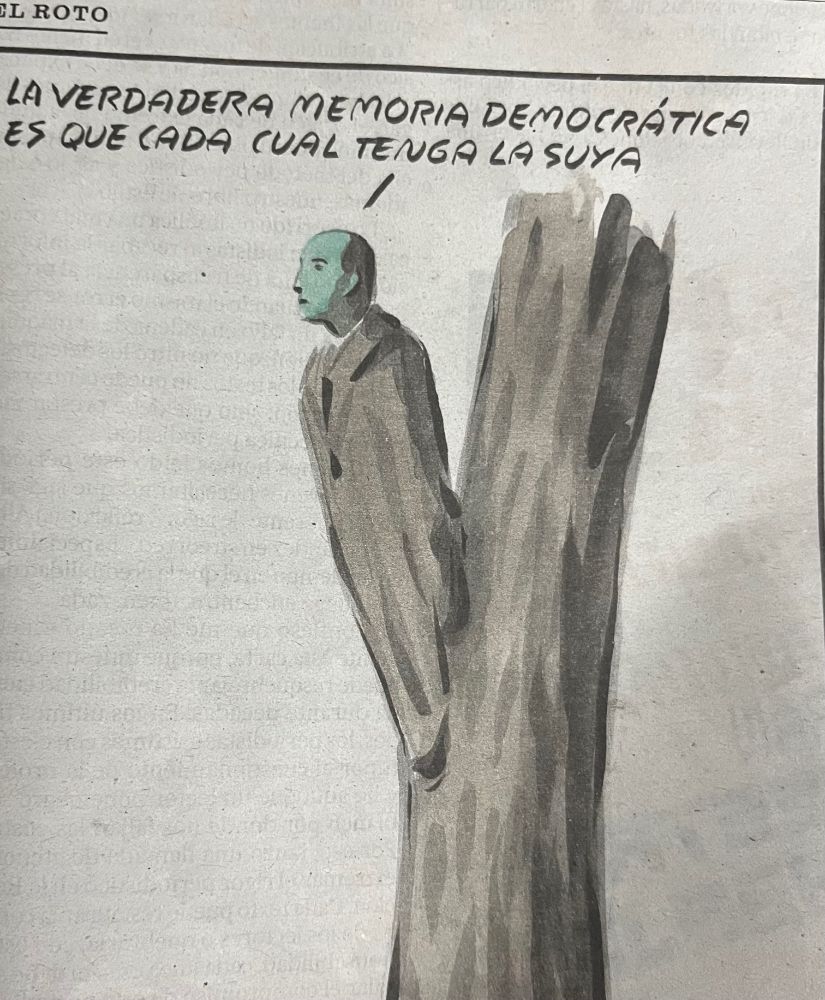 EL ROTO
LA VERDADERA MEMORIA DEMOCRÁTICA
ES QUE CADA CUAL TENGA LA SUYA